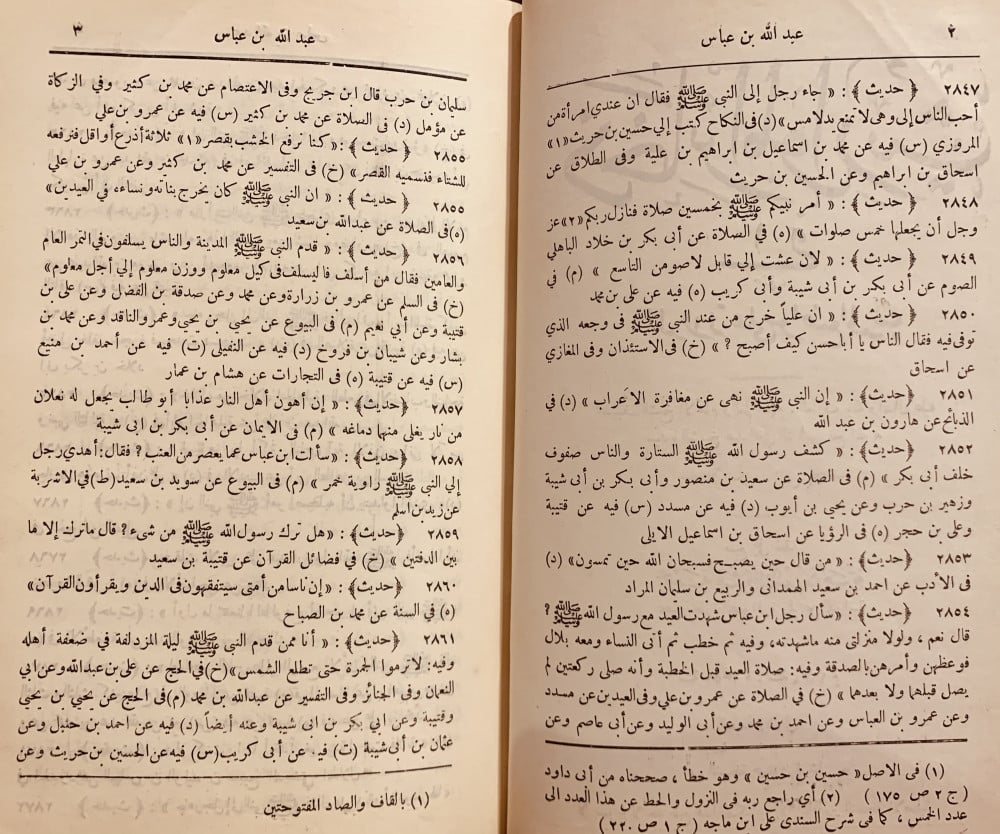 ٢ عبد الله بن عباس
٢٨٤٧ ﴿ حديث ﴾ : « جاء رجل إلى النبي ﷺ فقال ان عندي امرأة من
أحب الناس إلى وهى لا تمنع يد لامس » (د) فى النكاح كتب إلي حسين بن حريث «١»
المروزي (س) فيه عن محمد بن اسماعيل بن ابراهيم بن علية وفى الطلاق عن
اسحاق بن ابراهيم وعن الحسين بن حريث
٢٨٤٨ ﴿ حديث ﴾ : « أمر نبيكم ﷺ بخمسين صلاة فنازل ربكم «٢» عز
وجل أن يجعلها خمس صلوات » (ه) في الصلاة عن أبى بكر بن خلاد الباهلي
٢٨٤٩ ﴿ حديث ﴾ : « لان عشت إلي قابل لاصومن التاسع » (م) في
الصوم عن أبى بكر بن أبى شيبة وأبى كريب (ه) فيه عن على بن محمد
٢٨٥٠ ﴿ حديث ﴾ : « ان علياً خرج من عند النبي ﷺ فى وجعه الذي
توفى فيه فقال الناس يا أبا حسن كيف أصبح ؟ » (خ) فى الاستئذان وفى المغازي
عن اسحاق
٢٨٥١ ﴿حديث﴾ : « إن النبي ﷺ نهى عن مغافرة الاعراب » (د) في
الذبائح عن هارون بن عبد الله
٢٨٥٢ ﴿حديث﴾ : « كشف رسول الله ﷺ الستارة والناس صفوف
خلف أبى بكر » (م) فى الصلاة عن سعيد بن منصور وأبى بكر بن أبى شيبة
وزهير بن حرب وعن يحيى بن أيوب (د) فيه عن مسدد (س) فيه عن قتيبة
وعلى بن حجر (ه) فى الرؤيا عن اسحاق بن اسماعيل الايلى
٢٨٥٣ ﴿حديث﴾ : « من قال حين يصبح فسبحان الله حين تمسون» (د)
فى الأدب عن احمد بن سعيد الهمدانى والربيع بن سليمان المراد
٢٨٥٤ ﴿حديث﴾ : « سأل رجل ابن عباس شهدت العيد مع رسول الله ﷺ ؟
قال نعم ، ولولا منزلتى منه ماشهدته، وفيه ثم خطب ثم أتى النساء ومعه بلال
فوعظهن وأمرهن بالصدقة وفيه: صلاة العيد قبل الخطبة وأنه صلى ركعتين لم
يصل قبلها ولا بعدها » (خ) في الصلاة عن عمرو بن علي وفى العيدين عن مسدد
وعن عمرو بن العباس وعن احمد بن محمد وعن أبى الوليد وعن أبى عاصم وعن
(١) فى الاصل« حسين بن حسين » وهو خطأ ، صححناه من أبى داود
( ج ٢ ص ١٧٥ ) (٢) أي راجع ربه فى النزول والحط عن هذا العدد الى
عدد الخمس ، كما فى شرح السندى على ابن ماجه ( ج ١ ص ٢٢٠ )
عبد الله بن عباس ٣
سليمان بن حرب قال ابن جريج وفى الاعتصام عن محمد بن كثير وفي الزكاة
عن مؤمل (د) فى الصلاة عن محمد بن كثير (س) فيه عن عمرو بن على
٢٨٥٥ ﴿ حديث ﴾ : « كنا نرفع الخشب بقصر «١» ثلاثة أذرع أو اقل فنرفعه
للشتاء فنسميه القصر » (خ) في التفسير عن محمد بن كثير وعن عمرو بن علي
٢٨٥٥ ﴿ حديث ﴾ : « ان النبى ﷺ كان يخرج بناته ونساءه فى العيدين»
(ه) فى الصلاة عن عبدالله بن سعيد
٢٨٥٦ ﴿ حديث ﴾ : « قدم النبى ﷺ المدينة والناس يسلفون في التمر العام
والعامين فقال من أسلف فاليسلف فى كيل معلوم ووزن معلوم إلي أجل معلوم»
(خ) فى السلم عن عمرو بن زرارة وعن محمد وعن صدقة بن الفضل وعن على بن
قتيبة وعن أبي نعيم (م) فى البيوع عن يحيي بن يحيى وعمرو الناقد وعن محمد بن
بشار وعن شيبان بن فروخ (د) فيه عن النفيلى (ت) فيه عن أحمد بن منيع
(س) فيه عن قتيبة (ه) فى التجارات عن هشام بن عمار
٢٨٥٧ ﴿حديث﴾ : « إن أهون أهل النار عذابا أبو طالب يجعل له نعلان
من نار يغلى منها دماغه » (م) فى الايمان عن أبى بكر بن ابى شيبة
٢٨٥٨ ﴿حديث﴾ : « سألت ابن عباس عما يعصر من العنب ؟ فقال: أهدي رجل
إلي النبي ﷺ راوية خمر » (م) فى البيوع عن سويد بن سعيد (ط) في الاشربة
عن زيد بن اسلم
٢٨٥٩ ﴿حديث﴾ : «هل ترك رسول الله ﷺ من شىء؟ قال ماترك إلا ما
بين الدفتين » (خ) في فضائل القرآن عن قتيبة بن سعيد
٢٨٦٠ ﴿حديث﴾ : « إن ناسا من أمتى سيتفقهون فى الدين ويقرأون القرآن »
(ه) فى السنة عن محمد بن الصباح
٢٨٦١ ﴿حديث﴾ : « أنا ممن قدم النبى ﷺ ليلة المزدلفة في ضعفة أهله
وفيه: لا ترموا الجمرة حتى تطلع الشمس» (خ) في الحج عن على بن عبدالله وعن ابي
النعمان وفى الجنائز وفى التفسير عن عبدالله بن محمد (م) فى الحج عن يحيي بن يحيى
وقتيبة وعن ابي بكر بن ابى شيبة وعنه أيضاً (د) فيه عن احمد بن حنبل وعن
عثمان بن أبي شيبة (ت) فيه عن أبى كريب (س) فيه عن الحسين بن حريث وعن
(١) بالقاف والصاد المفتوحتين